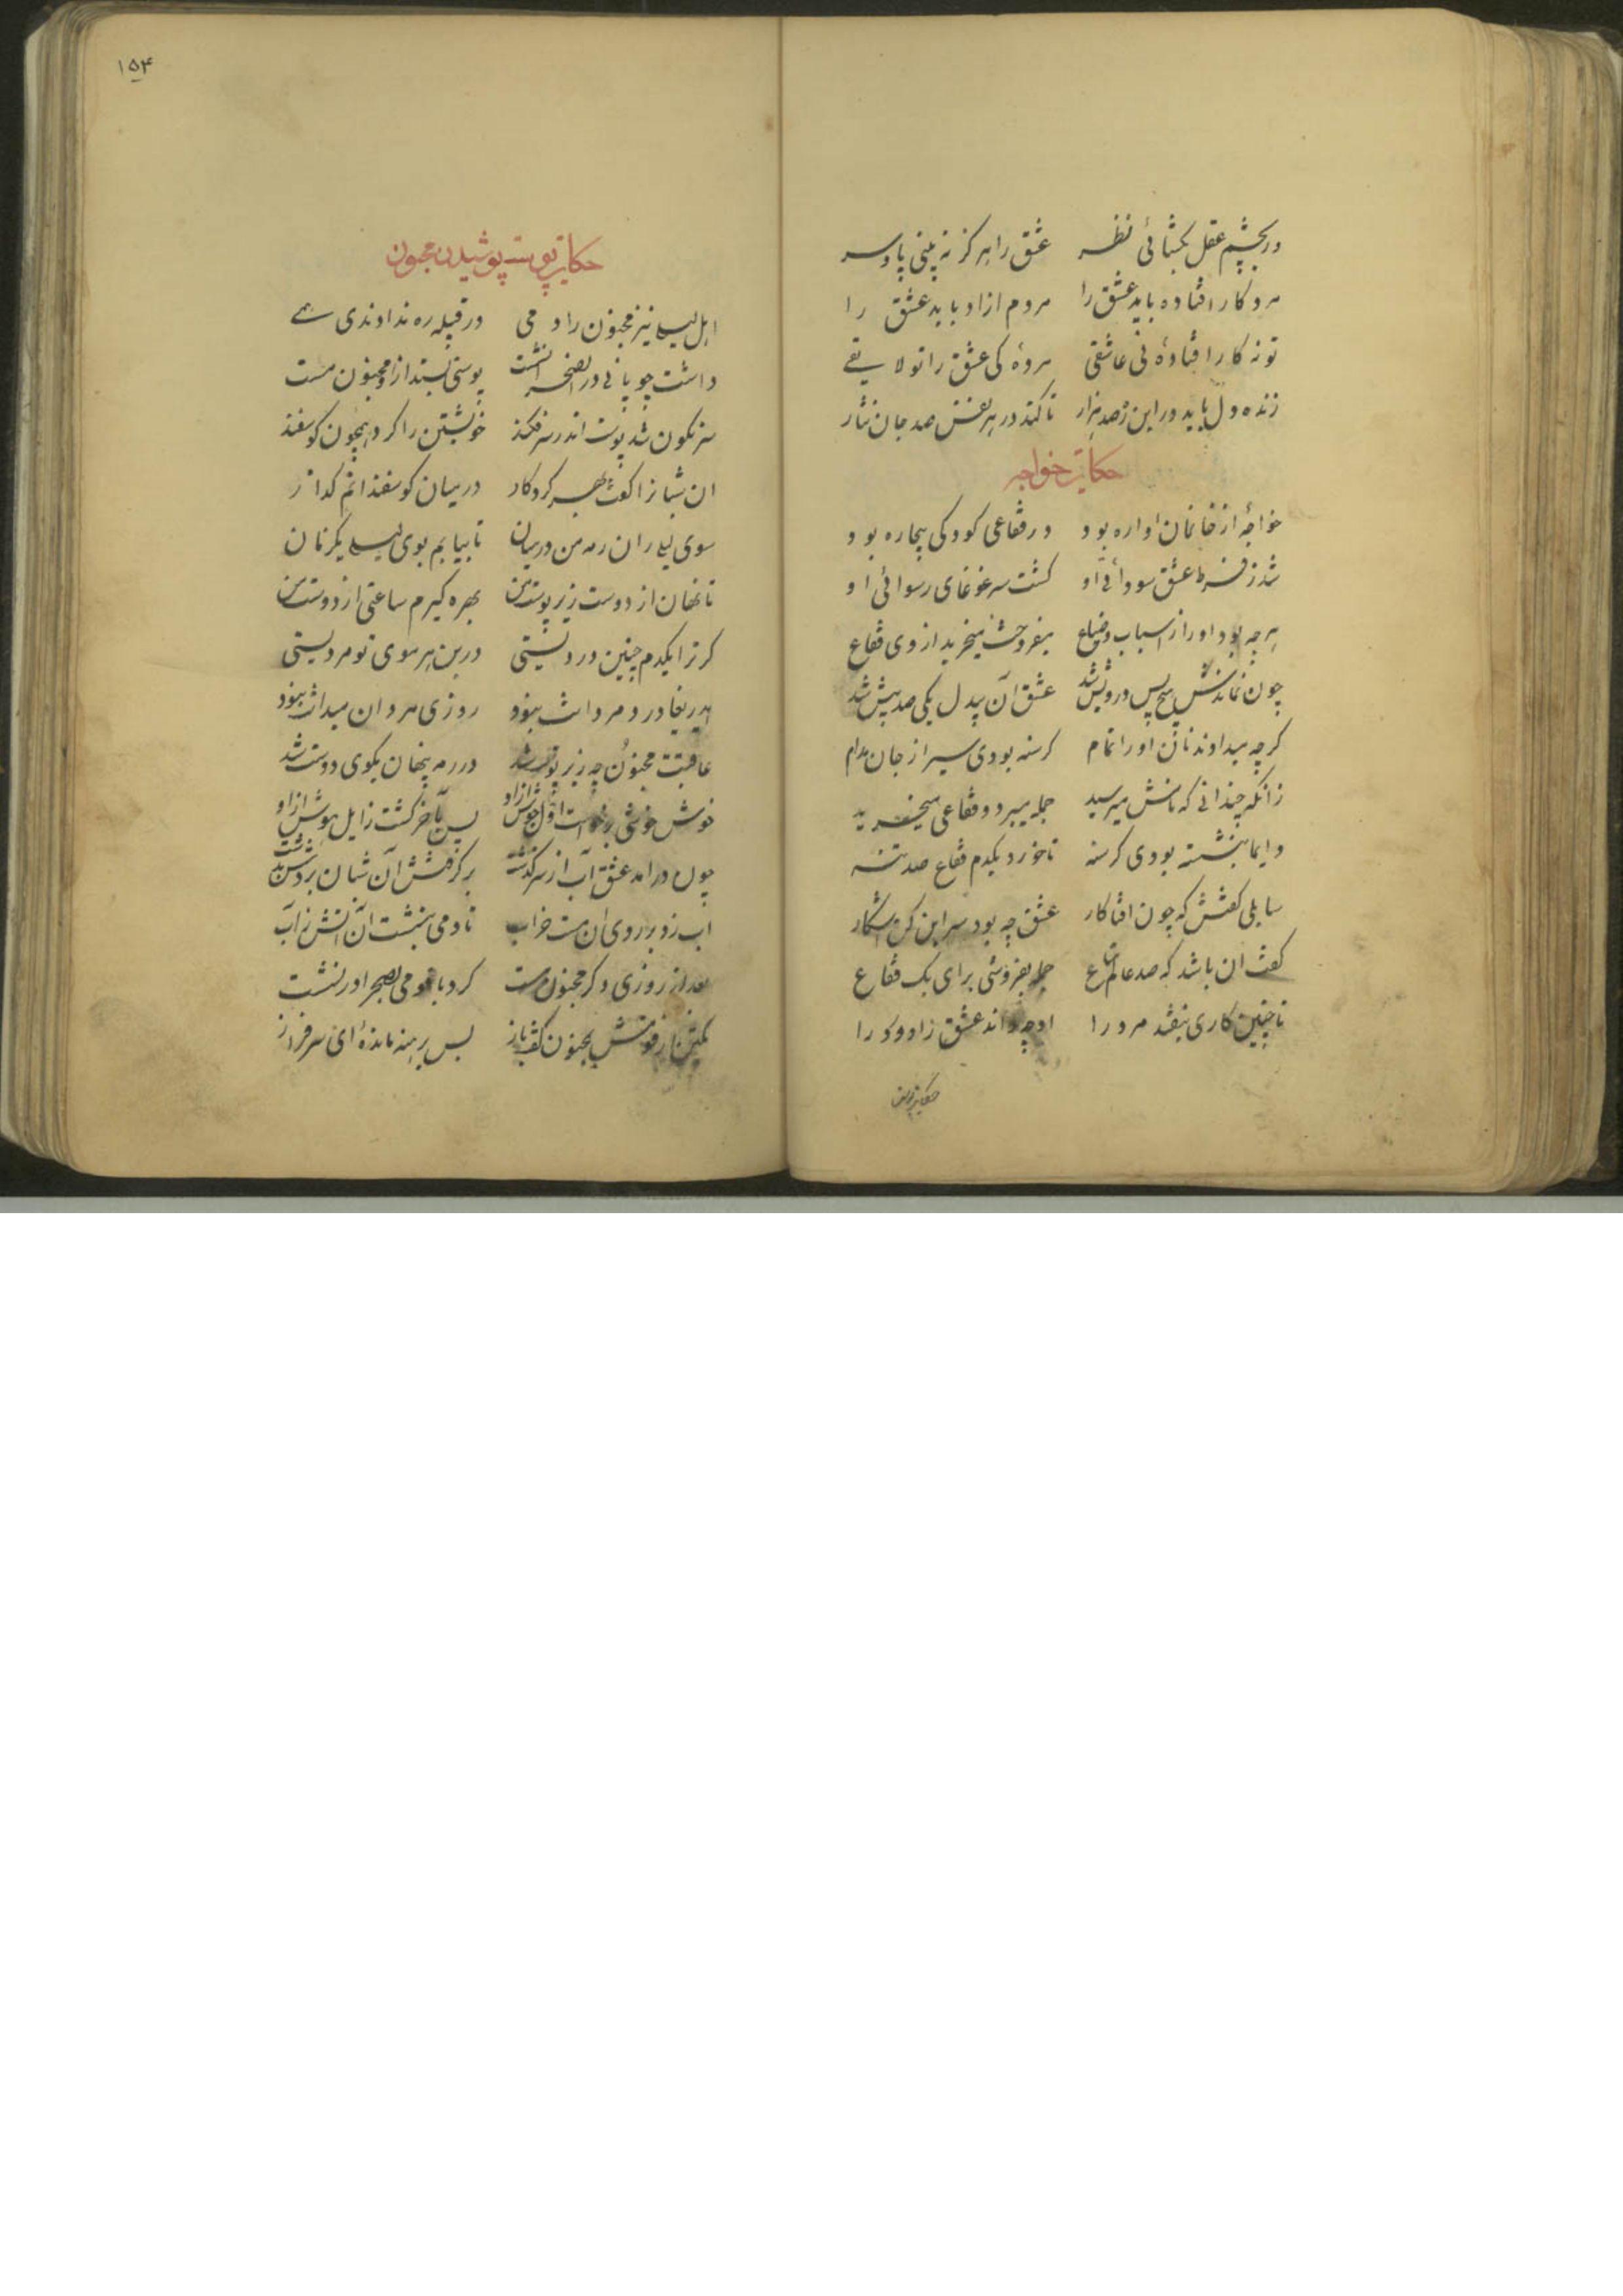 ور بچشم عقل بکشائی نظر عشق را هرکز نه بینی پا و سر
مرد کار افتاده باید عشق را مردم ازاد باید عشق را
تو نه کار افتادهٔ نی عاشقی مردهٔ کی عشق را تو لایقے
زنده دل باید در این ره صد هزار تا کند در هر نفس صد جان نثار
حکایت خواجه
خواجهٔ از خانمان اواره بود در فقاعی کودکی بیچاره بود
شد ز فرط عشق سودائی او کشت سر غوغای رسوائی او
هرچه بود او را ز اسباب و ضیاع میفروخت میخرید از وی فقاع
چون نماندش هیچ بس درویش شد عشق آن بیدل یکی صد بیش شد
کرچه میدادند نان او را تمام کرسنه بودی سیر از جان مدام
زانکه چندانی که نانش میرسید جمله میبرد و فقاعی میخرید
دایما بنشسته بودی کرسنه تا خورد یکدم فقاع صد تنه
سایلی کفتش که چون افتا کار عشق چه بود سر این کن اشکار
کفت ان باشد که صد عالم متاع جمله بفروشی برای یک فقاع
تا چنین کاری نیفتد مرد را او چه داند عشق را و درد را
حکایت پوست
۱۵۴
حکایت پوست پوشیدن مجنون
اهل لیلے نیز مجنون را دمی در قبیله ره ندادندی هے
داشت چوپانی در ان صحرا نشست پوستی بستد ازو مجنون مست
سرنکون شد پوست اندر سر فکند خویشتن را کرد همچون کوسفند
ان شبان را کفت بهر کردکار در میان کوسفندانم کذار
سوی لیلے ران رمه من در میان تا بیابم بوی لیلے یکزمان
تا نهان از دوست زیر پوست من بهره کیرم ساعتی از دوست من
کر ترا یکدم چنین دردیستی در بن هر موی تو مردیستی
ایدریغا درد مردانت نبود روزی مردان میدانت نبود
عاقبت مجنون چه زیر پوست شد در رمه پنهان بکوی دوست شد
خوش خوشی برخواست اول جوش ازاو پس بآخر کشت زایل هوش ازاو
چون درامد عشق آب از سر کذشت برکرفتش آن شبان بردش بدشت
اب زد بر روی ان مست خراب تا دمی بنشست آن آتش ز آب
بعد از ان روزی دکر مجنون مست کرد با قومی بصحرا در نشست
یکتن از قومش بمجنون کفت باز بس برهنه ماندهٔ ای سرفراز